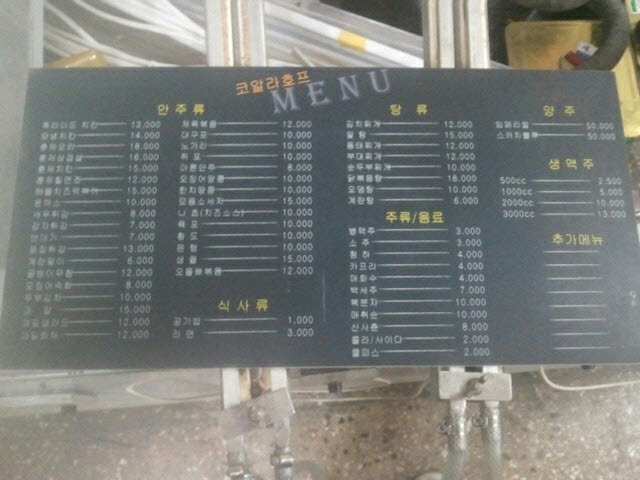 코알라호프
MENU
안주류
후라이드 치킨 13,000
양념치킨 14,000
훈제오리 18,000
훈제삼겹살 16,000
훈제치킨 15,000
훈제칠면조 12,000
해물치즈떡볶이 15,000
돈까스 10,000
새우튀김 8,000
감자튀김 7,000
번데기 7,000
해장튀김 13,000
계란말이 6,000
골뱅이무침 12,000
오징어숙회 8,000
두부김치 10,000
과일 15,000
과일샐러드 12,000
과일화채 12,000
제육볶음 12,000
대구포 10,000
노가리 10,000
쥐포 10,000
마른안주 8,000
오징어땅콩 10,000
한치땅콩 10,000
모듬소세지 15,000
나쵸(치즈소스) 10,000
육포 10,000
황도 10,000
은행 10,000
생률 15,000
오돌뼈볶음 12,000
식사류
공기밥 1,000
라면 3,000
탕류
김치찌개 12,000
알탕 15,000
동태찌개 12,000
부대찌개 12,000
순두부찌개 10,000
닭볶음탕 18,000
오뎅탕 10,000
계란탕 6,000
주류/음료
병맥주 3,000
소주 3,000
청하 4,000
카프리 4,000
매화수 4,000
백세주 7,000
복분자 10,000
매취순 10,000
산사춘 8,000
콜라/사이다 2,000
쿨피스 2,000
양주
임페리얼 50,000
스카치블루 50,000
생맥주
500cc 2,500
1000cc 5,000
2000cc 10,000
3000cc 13,000
추가메뉴